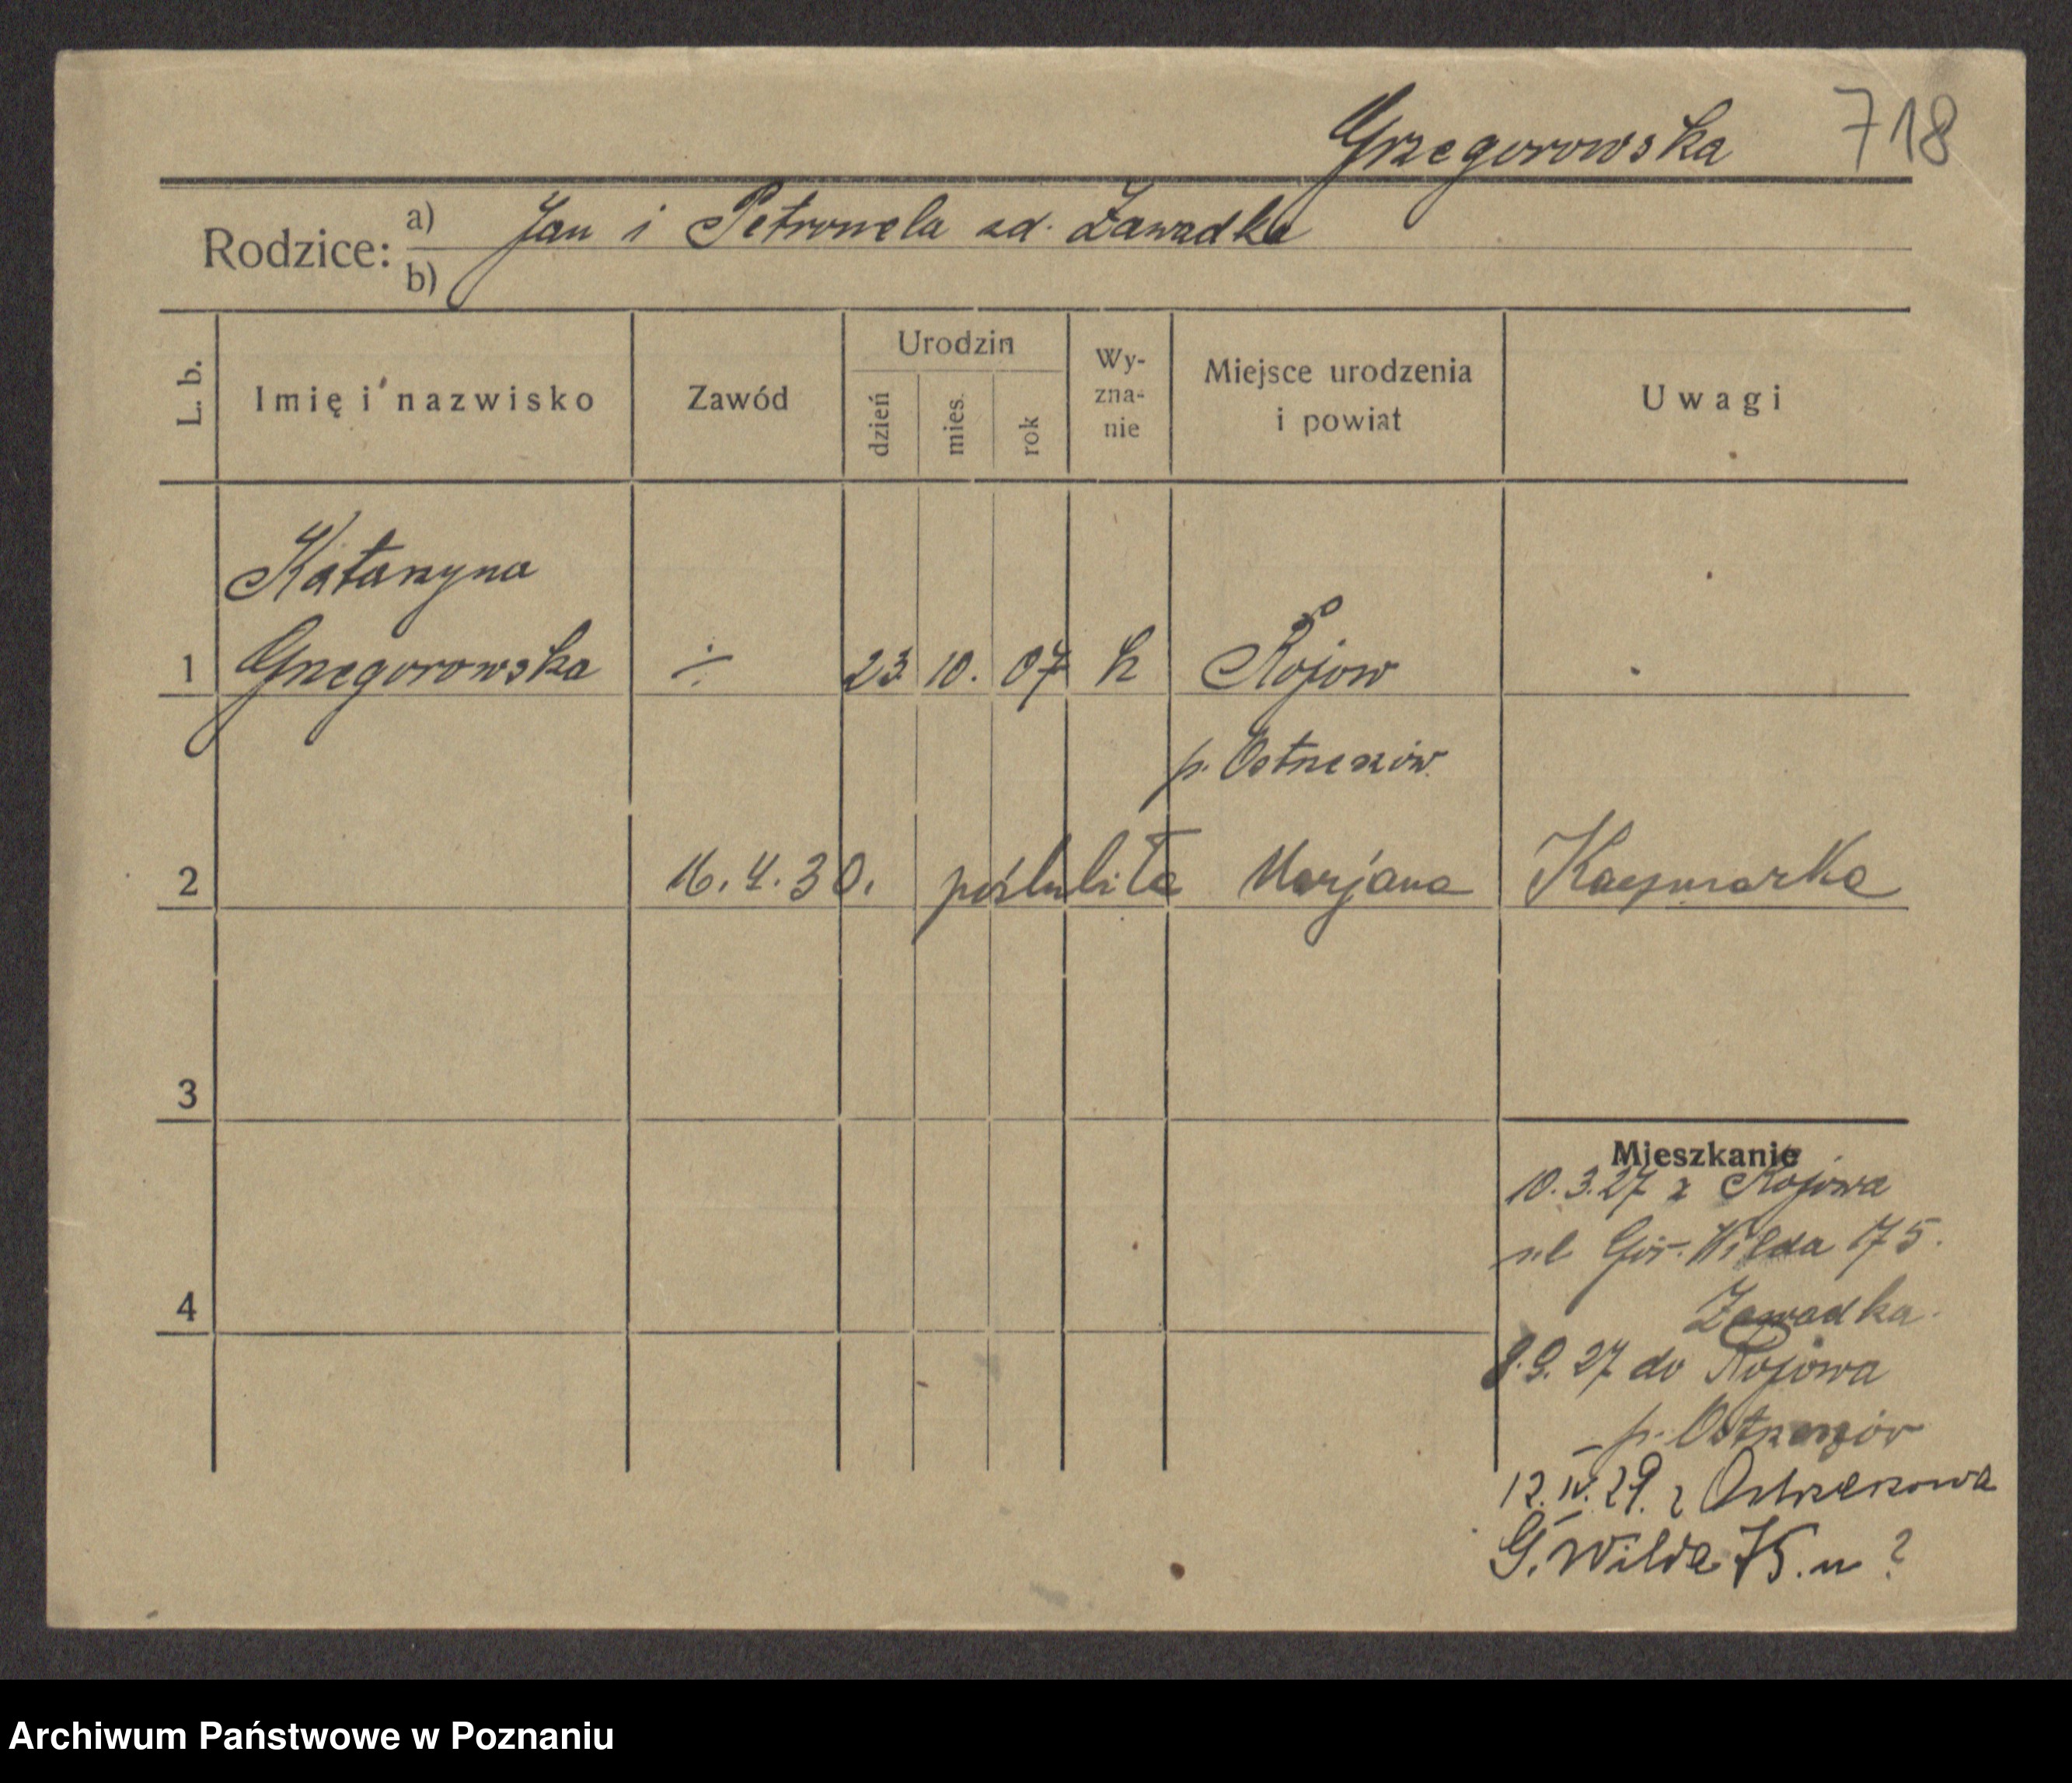 Grzegorowska 718
Rodzice: a) Jan i Petronela zd. Zawadka
b)
L. b. Imię i nazwisko Zawód Urodzin dzień mies. rok Wy-zna-nie Miejsce urodzenia i powiat Uwagi
Katarzyna
1 Grzegorowska ÷ 23 10. 07 k Rojow
p. Ostrzeszów
2 16.4.30. poślubiła Marjana Kaczmarka
3
Mieszkanie
10.3.27 z Rojowa
Gór. Wilda 175.
4
Zawadka
8.9.27 do Rojowa
p. Ostrzeszów
12.IV.29. z Ostrzeszowa
G. Wilda 75. u ?
Archiwum Państwowe w Poznaniu